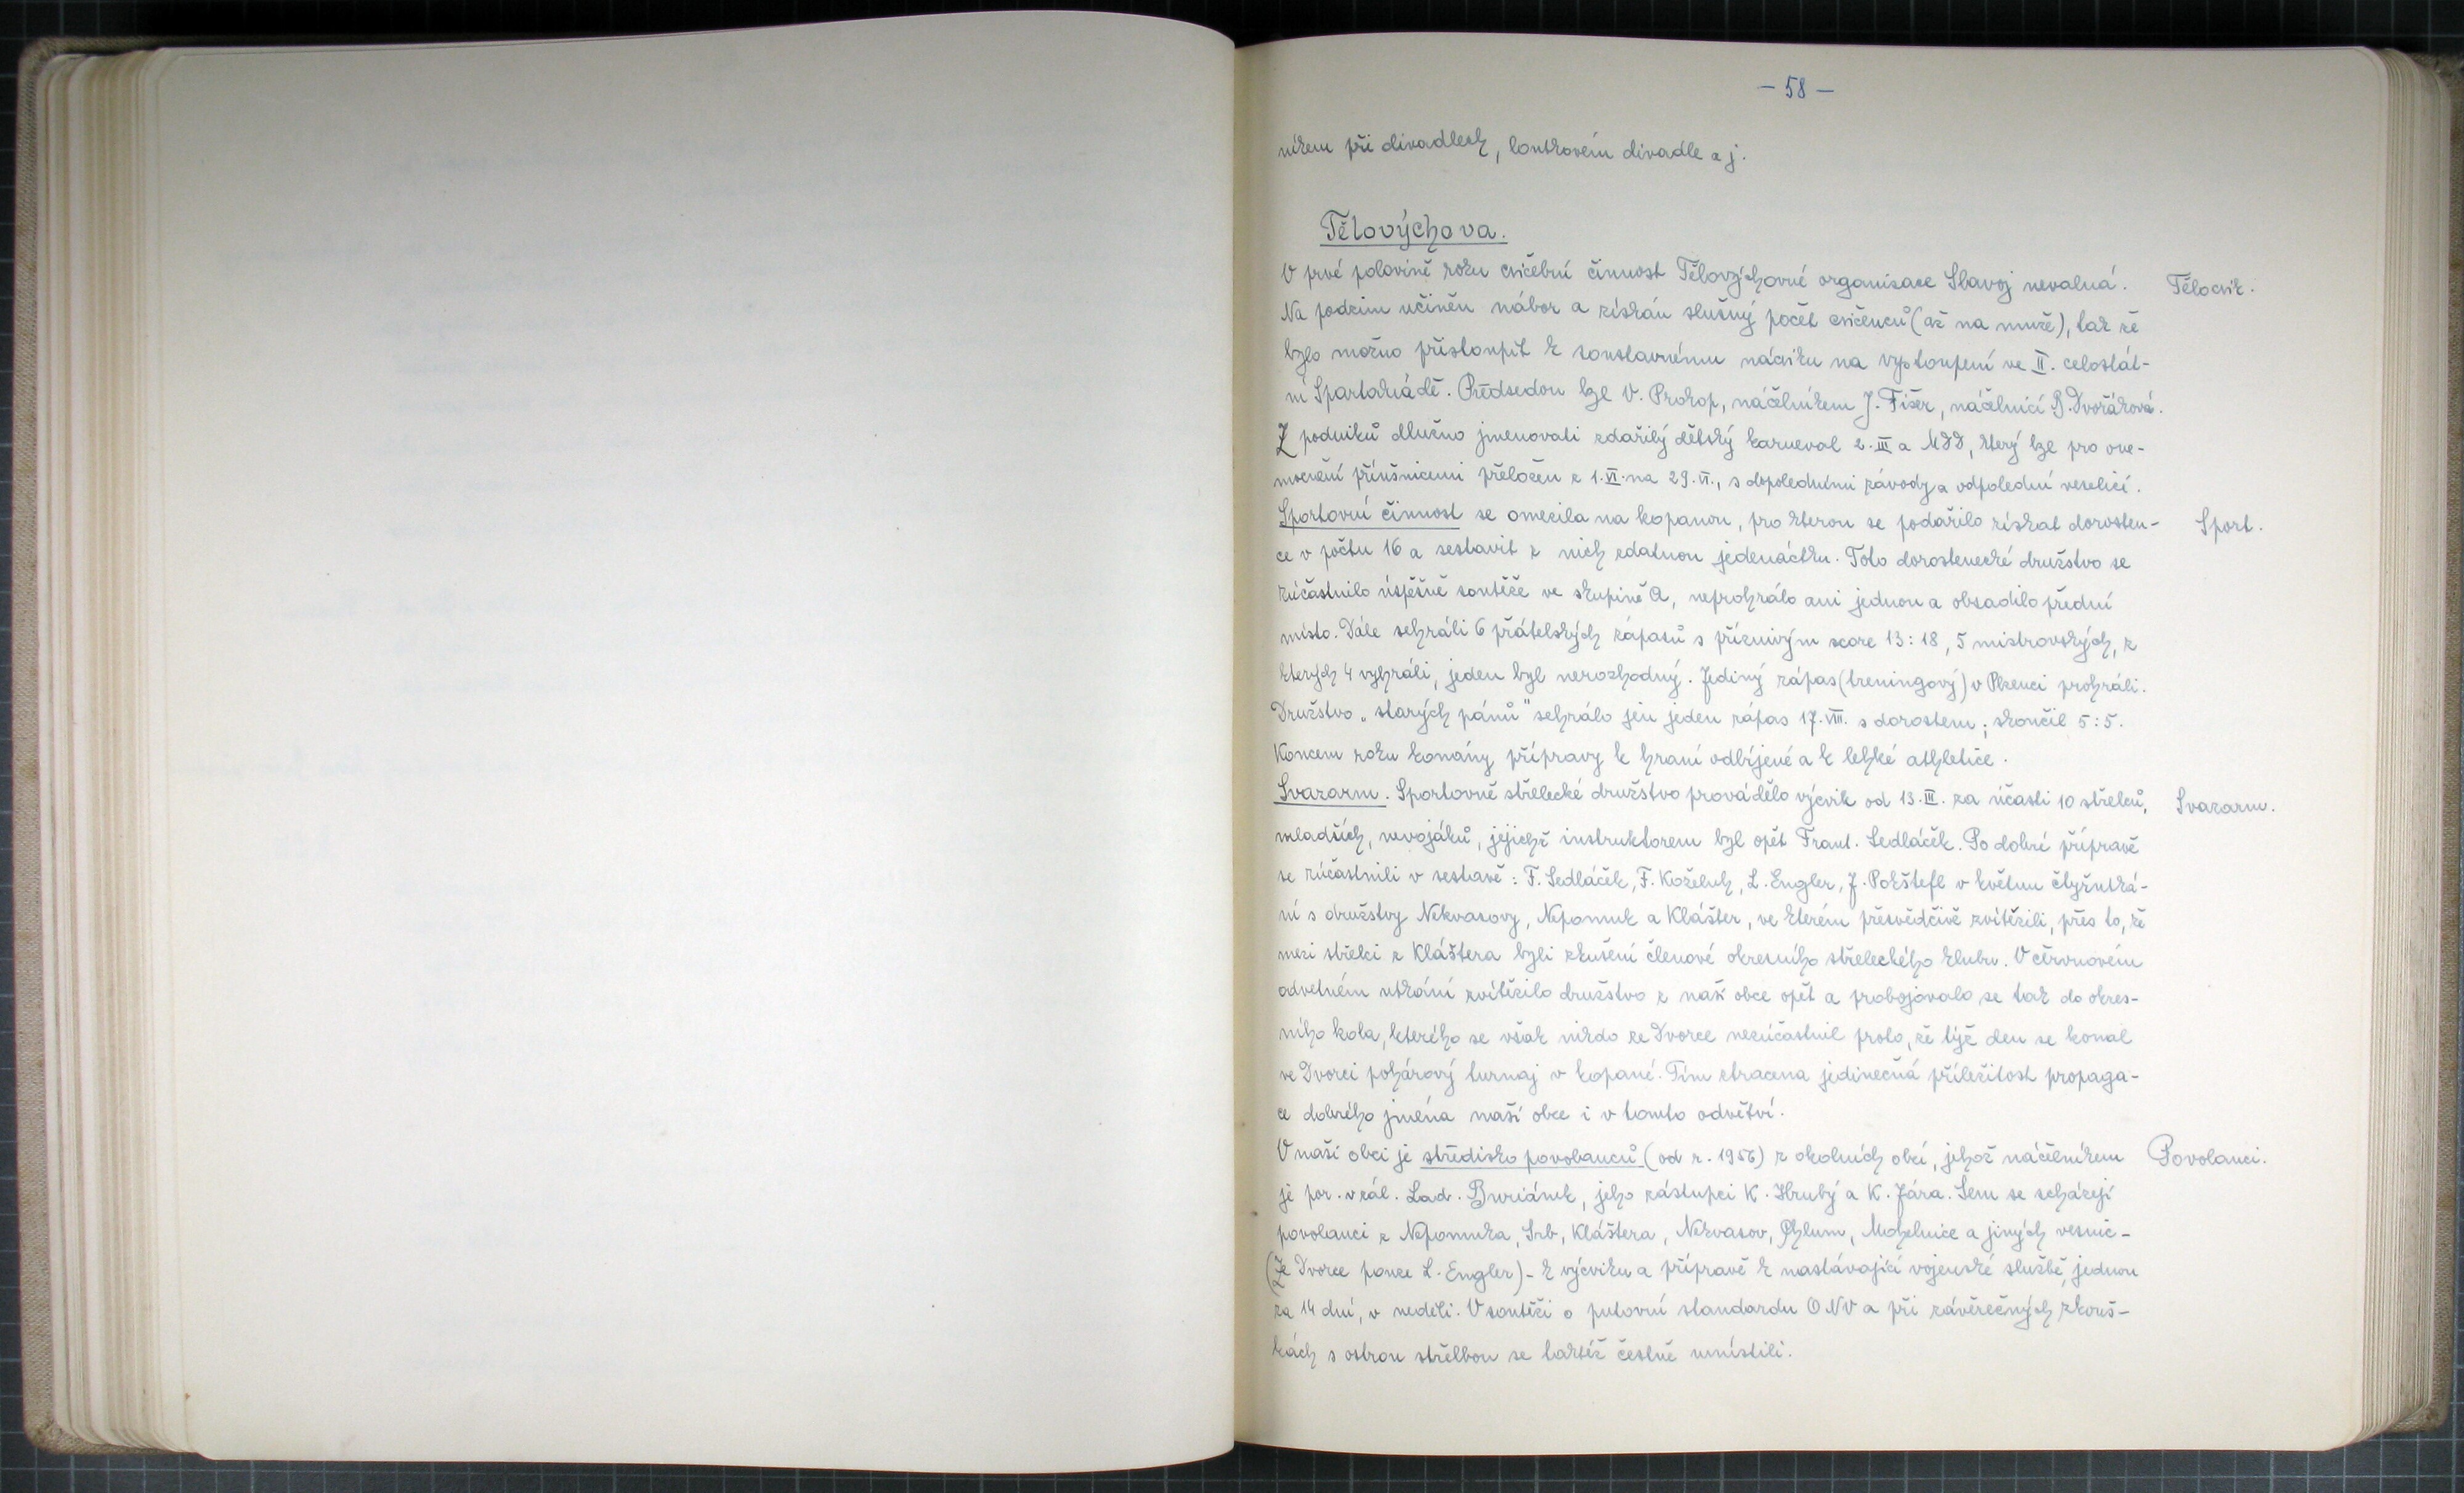 – 58 –
níkem při divadlech, loutkovém divadle a j.
Tělovýchova.
V prvé polovině roku cvičební činnost Tělovýchovné organisace Slavoj nevalná. Tělocvik.
Na podzim učiněn nábor a získán slušný počet cvičenců (až na muže), tak že
bylo možno přistoupit k soustavnému nácviku na vystoupení ve II. celostát-
ní Spartakiádě. Předsedou byl V. Prokop, náčelníkem J. Fišer, náčelnicí B. Dvořáková.
Z podniků dlužno jmenovati zdařilý dětský karneval 2. III a MDD, který byl pro one-
mocnění příušnicemi přeložen z 1. VI. na 29. VI., s dopoledními závody a odpolední veselicí.
Sportovní činnost se omezila na kopanou, pro kterou se podařilo získat dorosten- Sport.
ce v počtu 16 a sestavit z nich zdatnou jedenáctku. Toto dorostenecké družstvo se
zúčastnilo úspěšně soutěže ve skupině A, neprohrálo ani jednou a obsadilo přední
místo. Dále sehráli 6 přátelských zápasů s příznivým score 13:18, 5 mistrovských, z
kterých 4 vyhráli, jeden byl nerozhodný. Jediný zápas (treningový) v Plzenci prohráli.
Družstvo „starých pánů" sehrálo jen jeden zápas 17. VIII. s dorostem; skončil 5:5.
Koncem roku konány přípravy k hraní odbíjené a k lehké athletice.
Svazarm. Sportovně střelecké družstvo provádělo výcvik od 13. III. za účasti 10 střelců, Svazarm.
mladších, nevojáků, jejichž instruktorem byl opět Frant. Sedláček. Po dobré přípravě
se zúčastnili v sestavě: F. Sedláček, F. Koželuh, L. Engler, J. Pokštefl v květnu čtyřutká-
ní s družstvy Nekvasovy, Nepomuk a Klášter, ve kterém přesvědčivě zvítězili, přes to, že
mezi střelci z Kláštera byli zkušení členové okresního střeleckého klubu. V červnovém
odvetném utkání zvítězilo družstvo z naší obce opět a probojovalo se tak do okres-
ního kola, kterého se však nikdo ze Dvorce nezúčastnil proto, že týž den se konal
ve Dvorci pohárový turnaj v kopané. Tím ztracena jedinečná příležitost propaga-
ce dobrého jména naší obce i v tomto odvětví.
V naší obci je středisko povolanců (od r. 1956) z okolních obcí, jehož náčelníkem Povolanci.
je por. v zál. Lad. Buriánek, jeho zástupci K. Hrubý a K. Jára. Sem se scházejí
povolanci z Nepomuka, Srb, Kláštera, Nekvasov, Chlum, Mohelnice a jiných vesnic -
(Ze Dvorce pouze L. Engler) - k výcviku a přípravě k nastávající vojenské službě, jednou
za 14 dní, v neděli. V soutěži o putovní standardu ONV a při závěrečných zkouš-
kách s ostrou střelbou se taktéž čestně umístili.